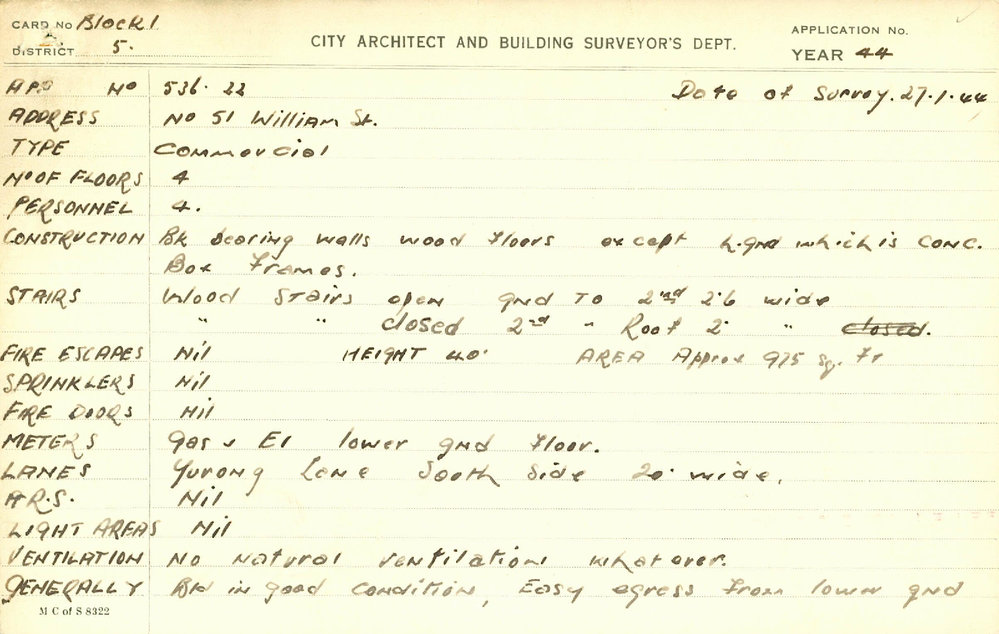 CARD NO Block 1
DISTRICT 5.
CITY ARCHITECT AND BUILDING SURVEYOR'S DEPT.
APPLICATION NO.
YEAR 44
APP NO 536. 22 Date of Survey. 27.1.44
ADDRESS NO 51 William St.
TYPE Commercial
NO OF FLOORS 4
PERSONNEL 4.
CONSTRUCTION Bk bearing walls wood floors except L.gnd which is conc.
Box Frames.
STAIRS Wood Stairs open gnd TO 2nd 2'6 wide
" " closed 2nd " Roof 2' " closed.
FIRE ESCAPES Nil HEIGHT 40' AREA Approx 975 sq. Ft
SPRINKLERS Nil
FIRE DOORS Nil
METERS Gas & El lower gnd floor.
LANES Yurong Lane South Side 20' wide.
A.R.S. Nil
LIGHT AREAS Nil
VENTILATION No natural ventilation whatever.
GENERALLY Bld in good condition, Easy egress from lower gnd
M C of S 8322